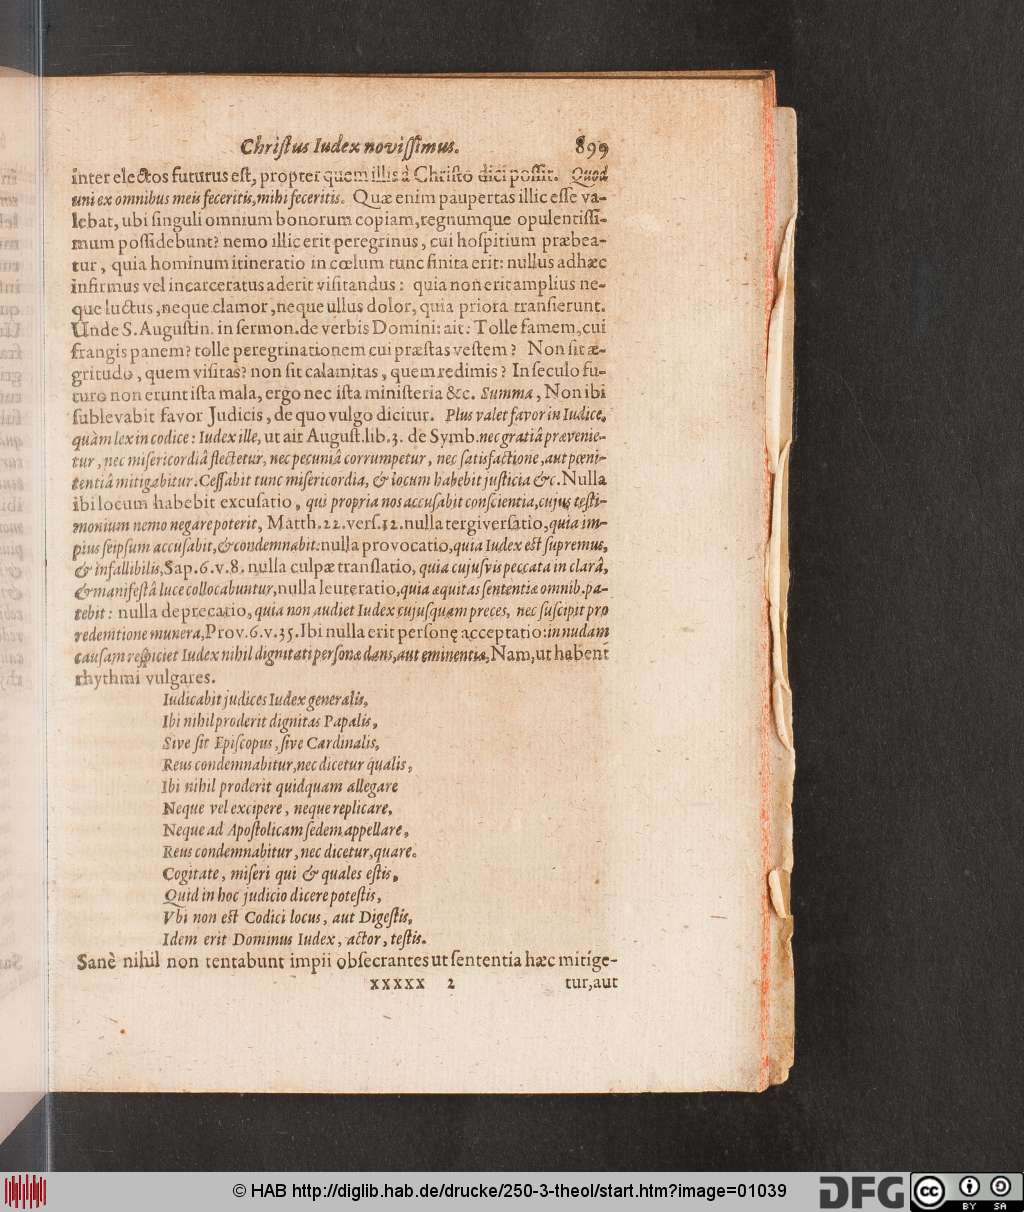 Christus Iudex novissimus. 899
inter electos futurus est, propter quem illis à Christo dici possit. Quod
uni ex omnibus meis feceritis, mihi feceritis. Quæ enim paupertas illic esse va-
lebat, ubi singuli omnium bonorum copiam, regnumque opulentissi-
mum possidebunt? nemo illic erit peregrinus, cui hospitium præbea-
tur, quia hominum itineratio in cœlum tunc finita erit: nullus adhæc
infirmus vel incarceratus aderit visitandus: quia non erit amplius ne-
que luctus, neque clamor, neque ullus dolor, quia priora transierunt.
Unde S. Augustin. in sermon. de verbis Domini: ait: Tolle famem, cui
frangis panem? tolle peregrinationem cui præstas vestem? Non sit æ-
gritudo, quem visitas? non sit calamitas, quem redimis? In seculo fu-
turo non erunt ista mala, ergo nec ista ministeria &c. Summa, Non ibi
sublevabit favor Judicis, de quo vulgo dicitur. Plus valet favor in Iudice,
quàm lex in codice: Iudex ille, ut ait August. lib. 3. de Symb. nec gratiâ prævenie-
tur, nec misericordiâ flectetur, nec pecuniâ corrumpetur, nec satisfactione, aut pœni-
tentiâ mitigabitur. Cessabit tunc misericordia, & locum habebit justicia &c. Nulla
ibi locum habebit excusatio, qui propria nos accusabit conscientia, cujus testi-
monium nemo negare poterit, Matth. 22. vers. 12. nulla tergiversatio, quia im-
pius seipsum accusabit, & condemnabit: nulla provocatio, quia Iudex est supremus,
& infallibilis, Sap. 6. v. 8. nulla culpæ translatio, quia cujusvis peccata in clarâ,
& manifestâ luce collocabuntur, nulla leuteratio, quia æquitas sententiæ omnib. pa-
tebit: nulla deprecatio, quia non audiet Iudex cujusquam preces, nec suscipit pro
redemtione munera, Prov. 6. v. 35. Ibi nulla erit personę acceptatio: in nudam
causam respiciet Iudex nihil dignitati personæ dans, aut eminentiæ, Nam, ut habent
rhythmi vulgares.
Iudicabit judices Iudex generalis,
Ibi nihil proderit dignitas Papalis,
Sive sit Episcopus, sive Cardinalis,
Reus condemnabitur, nec dicetur qualis,
Ibi nihil proderit quidquam allegare
Neque vel excipere, neque replicare,
Neque ad Apostolicam sedem appellare,
Reus condemnabitur, nec dicetur, quare.
Cogitate, miseri qui & quales estis,
Quid in hoc judicio dicere potestis,
Vbi non est Codici locus, aut Digestis,
Idem erit Dominus Iudex, actor, testis.
Sanè nihil non tentabunt impii obsecrantes ut sententia hæc mitige-
xxxxx 2 tur, aut
© HAB http://diglib.hab.de/drucke/250-3-theol/start.htm?image=01039 DFG cc BY SA